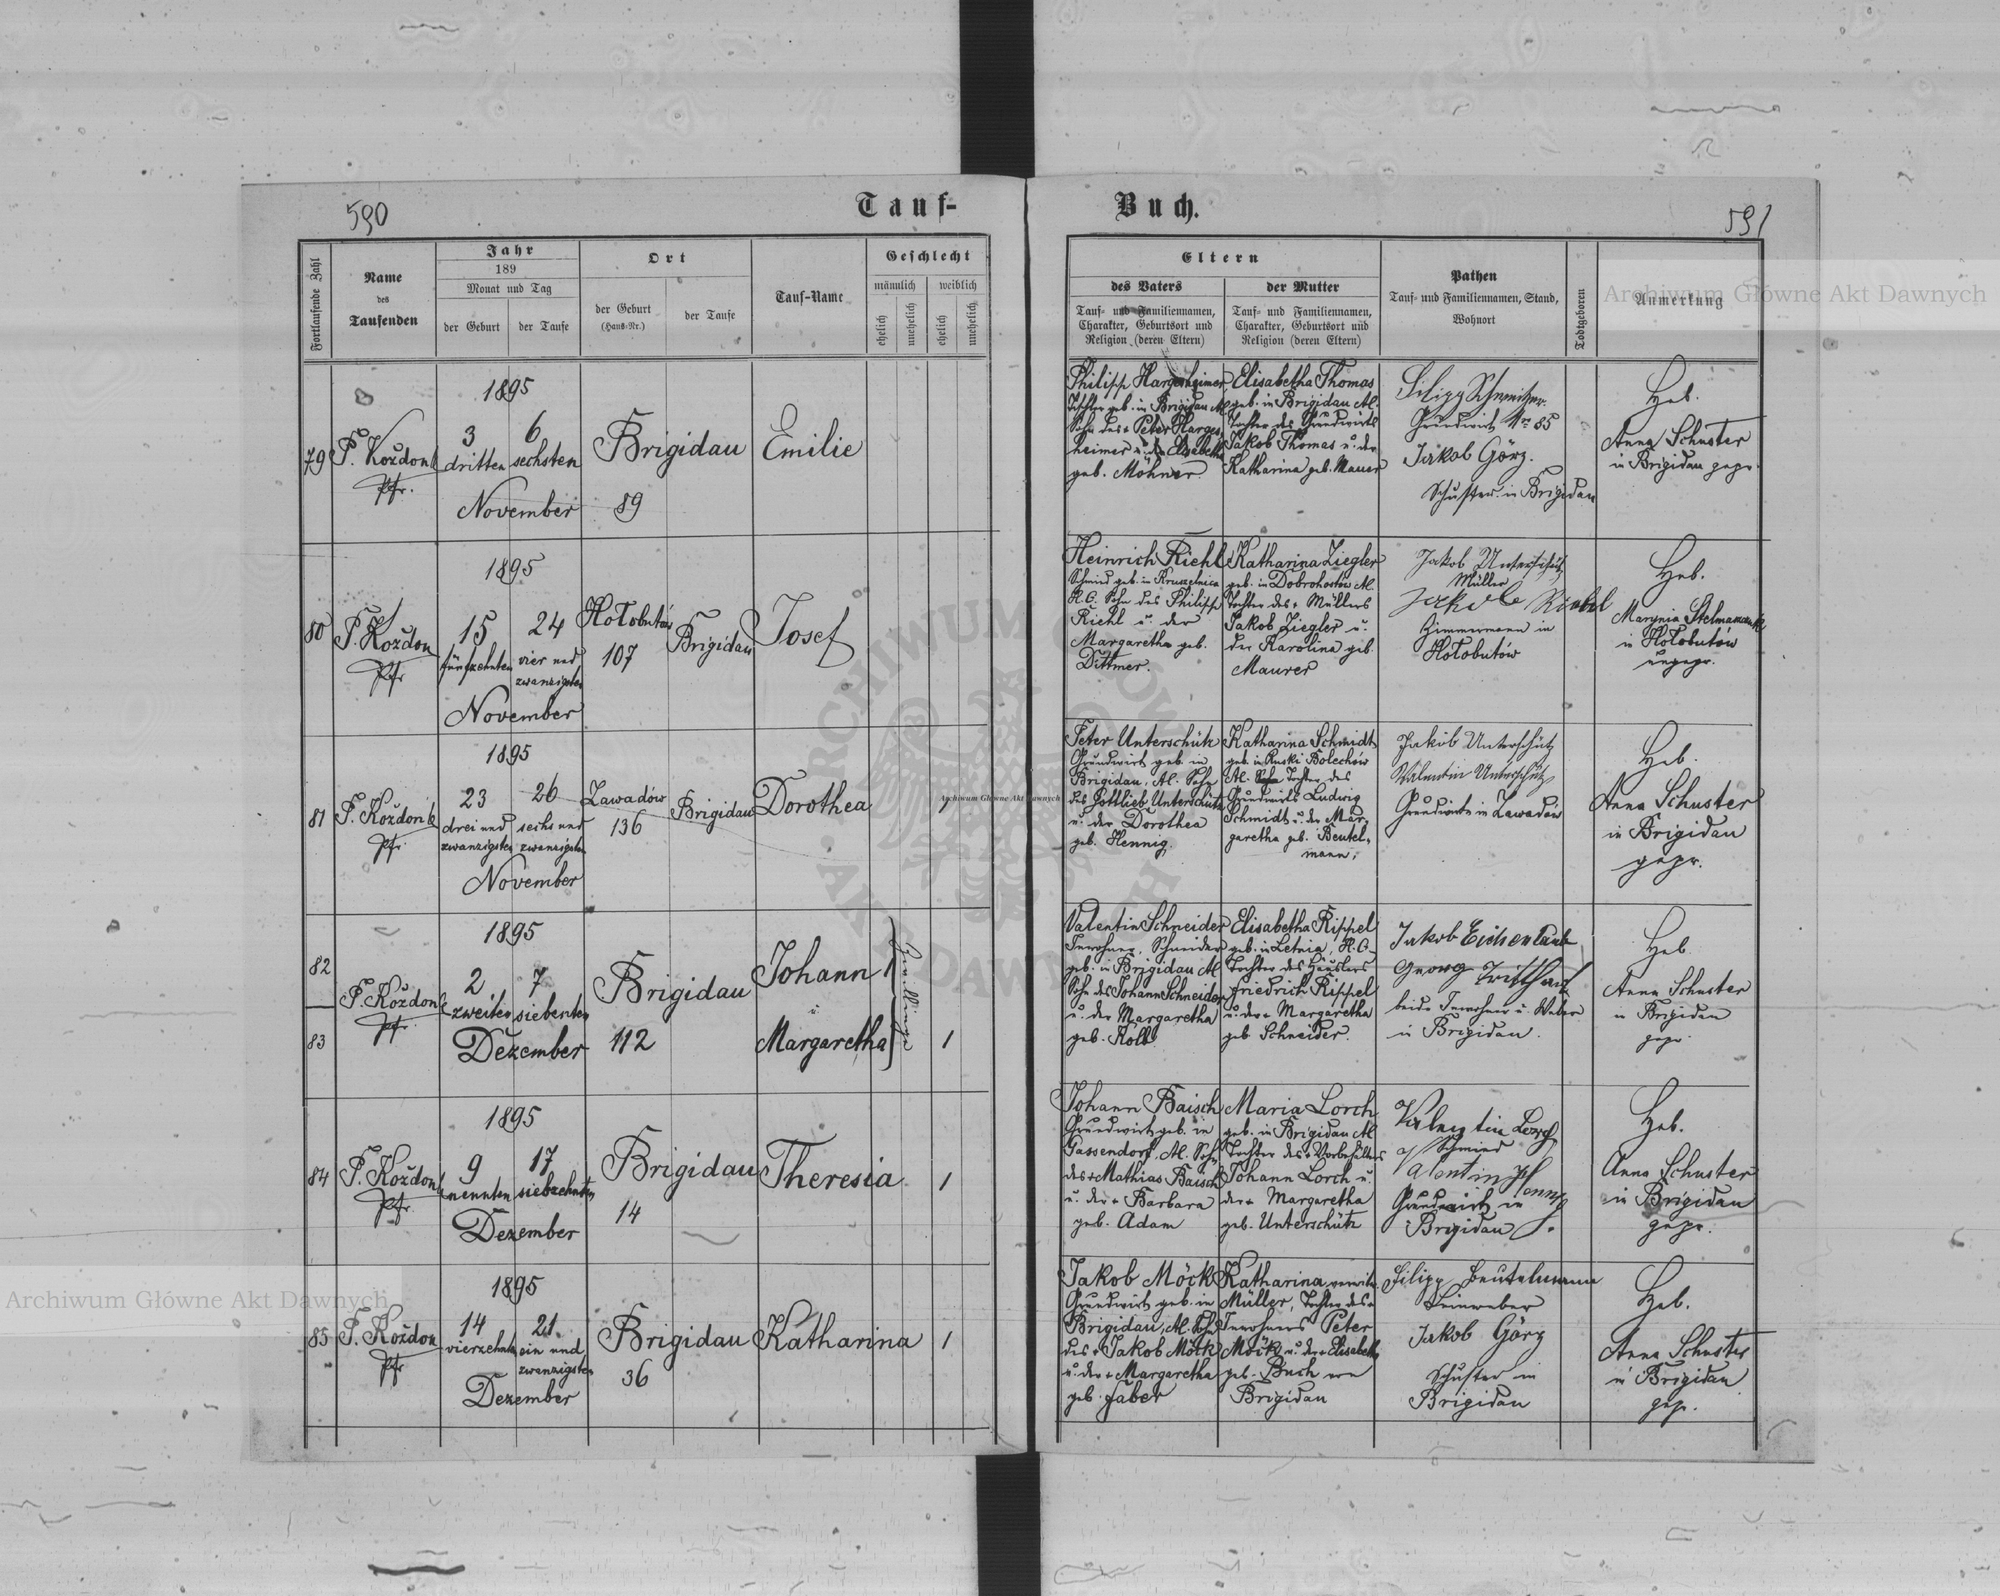 590
Tauf-
Buch.
591
Fortlaufende Zahl
Name
des
Taufenden
Jahr
189
Monat und Tag
der Geburt
der Taufe
Ort
der Geburt
(Haus-Nr.)
der Taufe
Tauf-Name
Geschlecht
männlich
weiblich
ehelich
unehelich
ehelich
unehelich
Eltern
des Vaters
Tauf- und Familiennamen,
Charakter, Geburtsort und
Religion (deren Eltern)
der Mutter
Tauf- und Familiennamen,
Charakter, Geburtsort und
Religion (deren Eltern)
Pathen
Tauf- und Familiennamen, Stand,
Wohnort
Todtgeboren
Anmerkung
79
Pfr.
1895
3
dritten
6
sechsten
November
Brigidau
89
Emilie
1
Philipp Hargesheimer
Tischler geb. in Brigidau Al.
Sohn des + Peter Harges
heimer u. der Elsabetha
geb. Möhner
Elisabetha Thomas
geb. in Brigidau Al.
Tochter des Grundwirts
Jakob Thomas u. der
Katharina geb. Mauer
Grundwirt Nr 85
Jakob Görz.
Schuster in Brigidau
Heb.
Anna Schuster
in Brigidau gepr.
80
P. Koždon
Pfr
1895
15
fünfzehnten
24
vier und
zwanzigsten
November
Hołobutów
107
Brigidau
Josef
Heinrich Riehl
Schmied geb. in Kruszelnica
H.C. Sohn des Philipp
Riehl u. der
Margaretha geb.
Dittmer.
Katharina Ziegler
geb. in Dobrohostów Al.
Tochter des + Müllers
Jakob Ziegler u.
der Karolina geb.
Maurer
Jakob Unterschütz
Müller
Jakob
Zimmermann in
Hołobutów
Heb.
Marynia
in Hołobutów
ungepr.
81
Pfr.
1895
23
drei und
zwanzigsten
26
sechs und
zwanzigsten
November
Zawadów
136
Brigidau
Dorothea
1
Peter Unterschütz
Grundwirt geb. in
Brigidau, Al. Sohn
des Gottlieb Unterschütz
u. der Dorothea
geb. Hennig.
Katharina Schmidt
geb. in Ruski Bolechów
Al. Tochter des
Grundwirts Ludwig
Schmidt u. der Mar-
garetha geb. Beutel-
mann.
Jakob Unterschütz
Valentin Unterschütz
Grundwirte in Zawadów
Heb.
Anna Schuster
in Brigidau
gepr.
82
83
Pfr.
1895
2
zweiten
7
siebenten
Dezember
Brigidau
112
Johann
u.
Margaretha
1
Zwillinge
1
Valentin Schneider
Inwohner, Schneider
geb. in Brigidau Al
Sohn des Johann Schneider
u. der Margaretha
geb. Kolb.
Elisabetha Rippel
geb. in Letnia, H.C.
Tochter des Häuslers
Friedrich Rippel
u. der + Margaretha
geb Schneider.
Jakob Eichenlaub
Georg Tritthart
beide Inwohner u. Weber
in Brigidau.
Heb
Anna Schuster
in Brigidau
gepr.
84
Pfr.
1895
9
neunten
17
siebzehnten
Dezember
Brigidau
14
Theresia
1
Johann Baisch
Grundwirt geb. in
Gassendorf, Al. Sohn
des + Mathias Baisch
u. der + Barbara
geb. Adam
Maria Lorch
geb. in Brigidau Al
Tochter des + Vorbehälters
Johann Lorch u.
der + Margaretha
geb. Unterschütz
Valentin Lorch
Schmied
Valentin
Grundwirt in
Brigidau
Heb.
Anna Schuster
in Brigidau
gepr.
85
P. Koždon
Pfr
1895
14
vierzehnten
21.
ein und
zwanzigsten
Dezember
Brigidau
36
Katharina
1
Jakob Möck
Grundwirt geb. in
Brigidau, Al. Sohn
des + Jakob Möck
u. der + Margaretha
geb. Faber
Katharina verwitw.
Müller, Tochter des +
Inwohners Peter
Möck u. der + Elisabeth
geb. Buch
Brigidau
Filipp Beutelmann
Leinweber
Jakob Görz
Schuster in
Brigidau
Heb.
Anna Schuster
in Brigidau
gepr.
Archiwum Główne Akt Dawnych
Archiwum Główne Akt Dawnych
Archiwum Główne Akt Dawnych